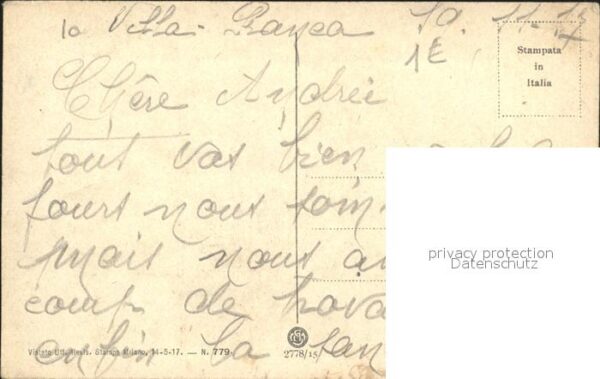 Villa-Franca 10-11-17
1E
Stampata
in
Italia
Chère Andrée
tout vas bien
jours nous som
mais nous a
coup de trava
enfin la san
privacy protection
Datenschutz
Visto Uff. Revis. Stampa Milano, 14-5-17. — N. 779
2778/15